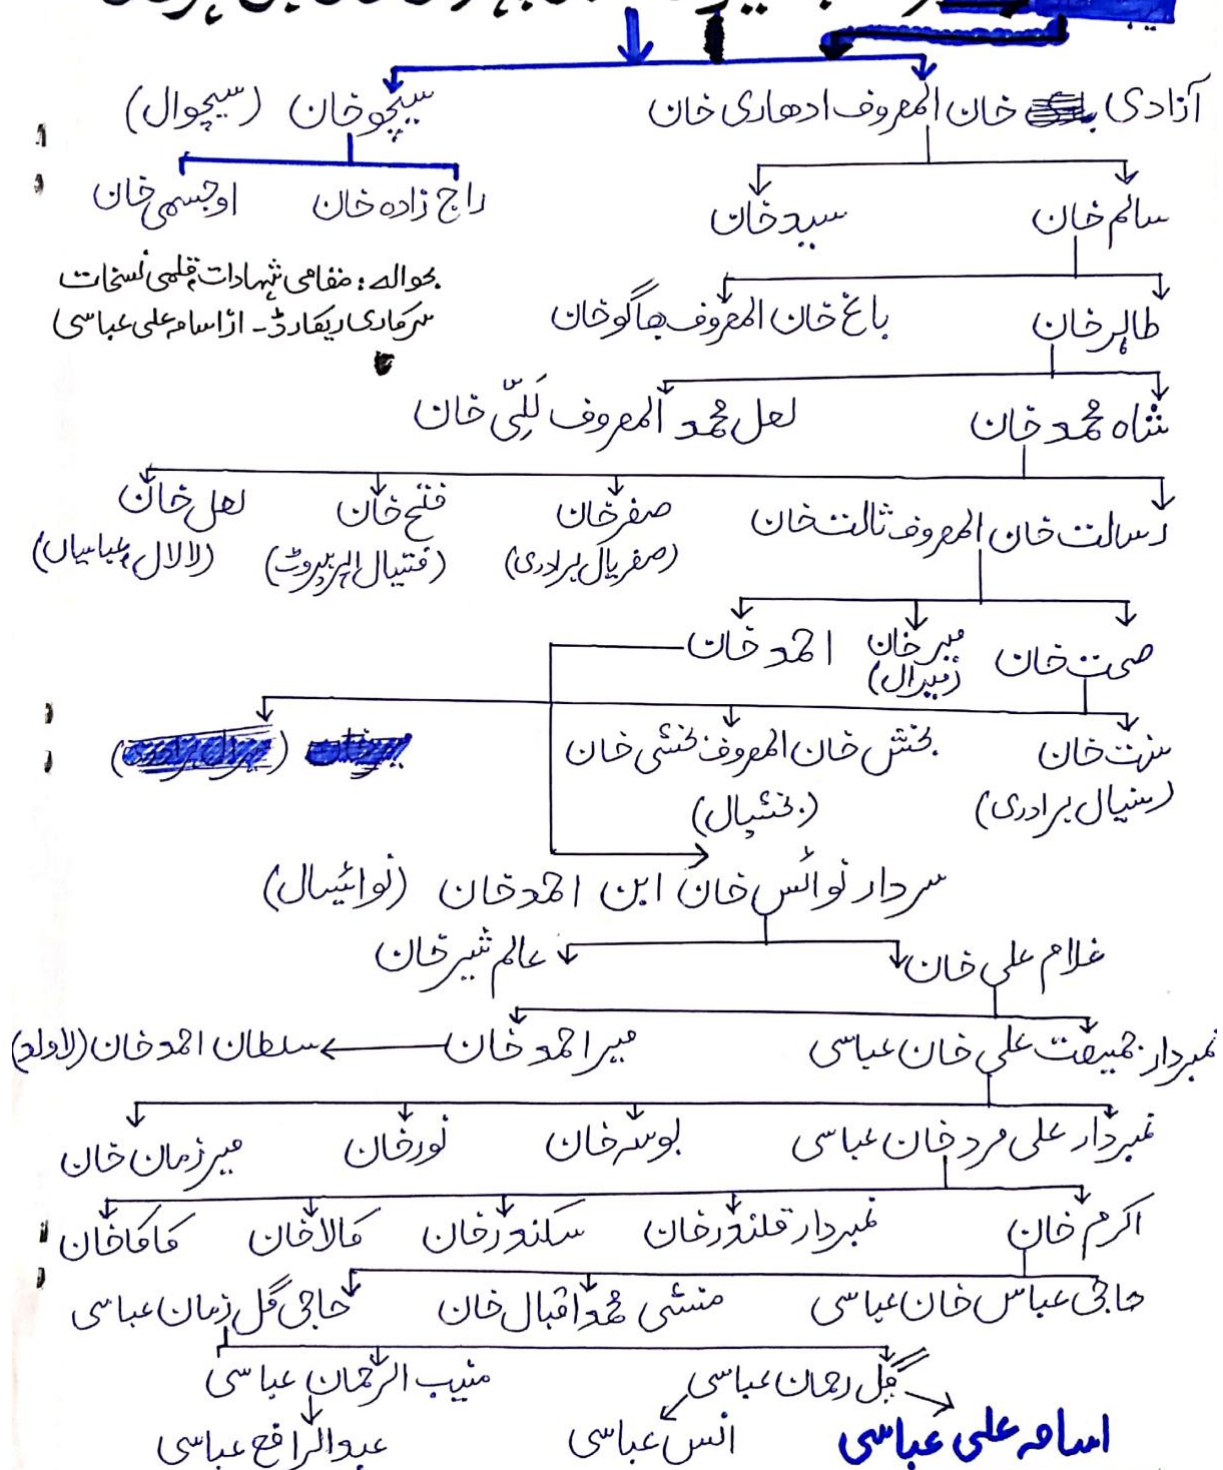 آزادی خان المعروف ادھاری خان
سیچو خان (سیچوال)
راج زادہ خان
اوجسمی خان
سالم خان
سید خان
بحوالہ: مقامی شہادات، قلمی نسخات
سرکاری ریکارڈ۔ از اسامہ علی عباسی
طاہر خان
باغ خان المعروف بھاگو خان
شاہ محمد خان
لعل محمد المعروف لَلّی خان
رسالت خان المعروف ثالث خان
صفر خان
(صفریال برادری)
فتح خان
(فتیال بیروٹ)
لعل خان
(لالال عباسیاں)
صحت خان
میر خان
(میرال)
احمد خان
منت خان
(منیال برادری)
بخش خان المعروف بخشی خان
(بخشیال)
سردار نوائس خان ابن احمد خان (نوائیسال)
غلام علی خان
عالم شیر خان
نمبردار جمیعت علی خان عباسی
میر احمد خان
سلطان احمد خان (لاولد)
نمبردار علی مرد خان عباسی
بوسہ خان
نور خان
میر زمان خان
اکرم خان
نمبردار قلندر خان
سکندر خان
کالا خان
کاکا خان
حاجی عباس خان عباسی
منشی محمد اقبال خان
حاجی گل زمان عباسی
گل رحمان عباسی
منیب الرحمان عباسی
اسامہ علی عباسی
انس عباسی
عبدالرافع عباسی